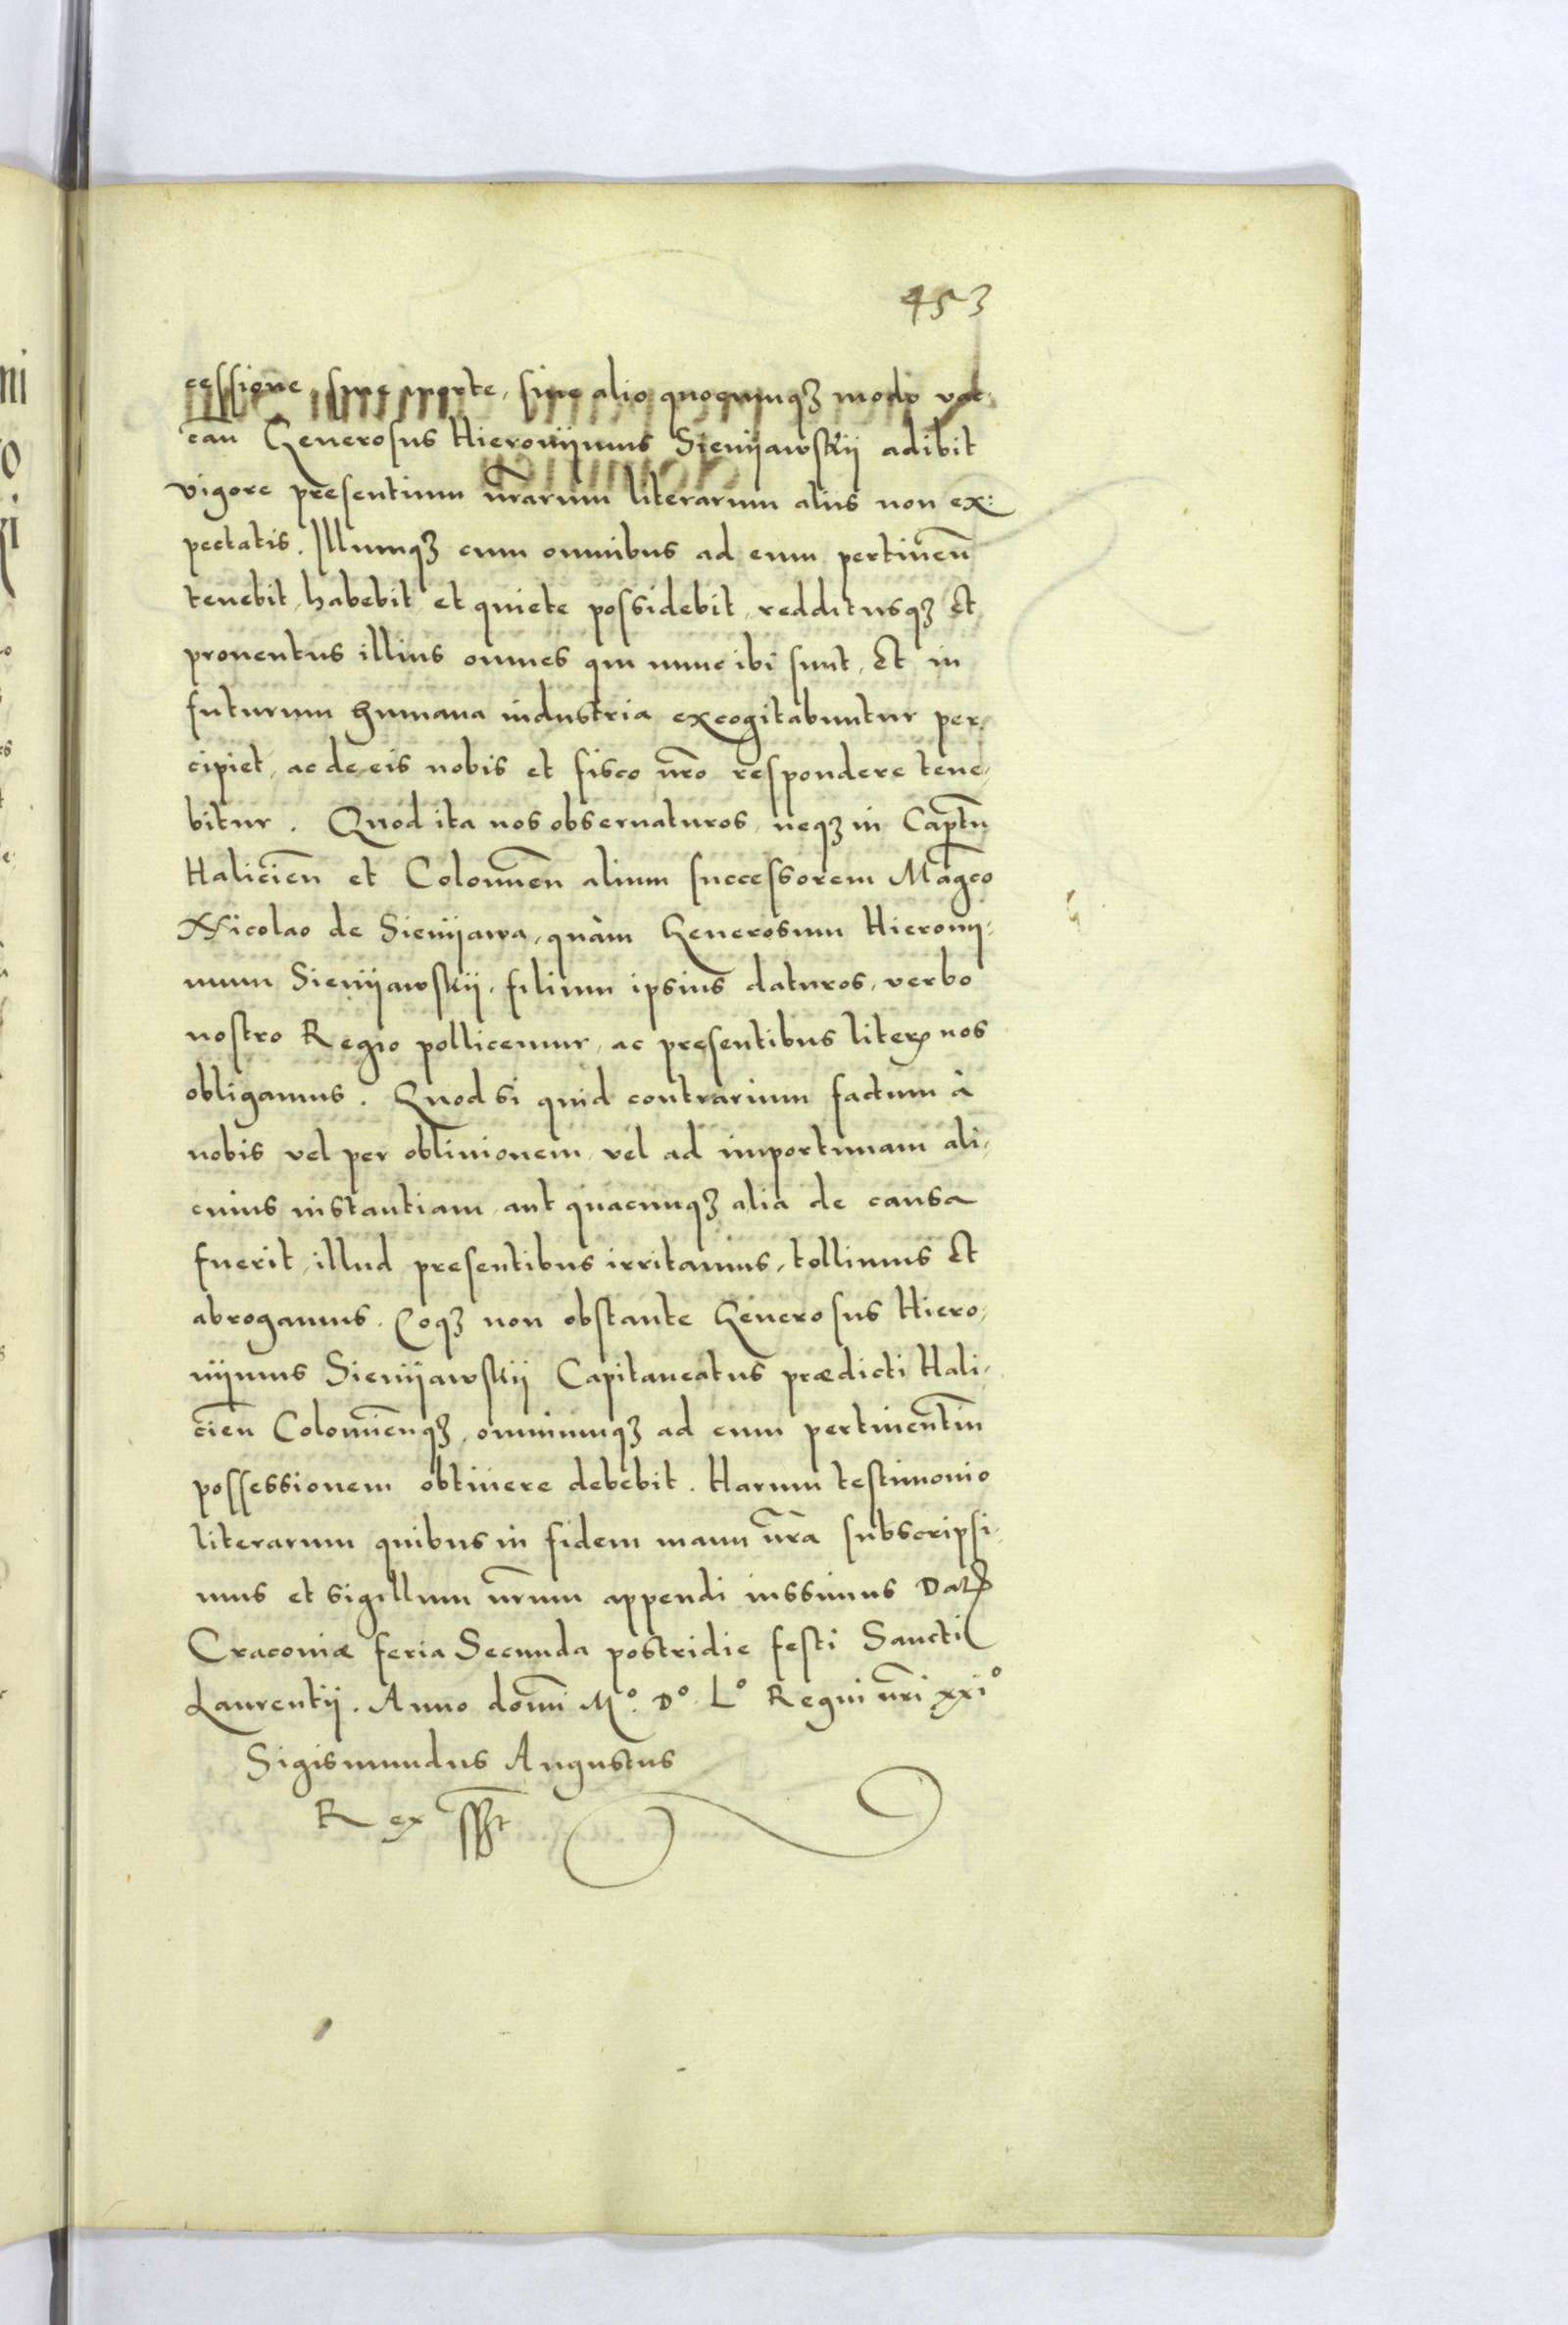 453
cessione, siue morte, siue alio quocunqȝ modo vac
cān Generosus Hieronijmus Sienijawskij adibit
vigore presentium nr̄arum literarum aliis non ex:
pectatis. Illumqȝ cum omnibus ad eum pertinen̄
tenebit, habebit et quiete possidebit, redditusqȝ et
prouentus illius omnes qui nunc ibi sunt, et in
futurum humana industria excogitabuntur per,
cipiet, ac de eis nobis et fisco nr̄o respondere tene,
bitur. Quod ita nos obseruaturos, neqȝ in Capt̄n
Halicien̄ et Colomien̄ alium successorem Maḡco
Nicolao de Sienijawa, quàm Generosum Hieronij:
mum Sienijawskij, filium ipsius daturos, verbo
nostro Regio pollicemur, ac presentibus literꝭ nos
obligamus. Quod si quid contrarium factum à
nobis vel per obliuionem, vel ad importunam ali,
cuius instantiam, aut quacunqȝ alia de causa
fuerit, illud presentibus irritamus, tollimus et
abrogamus. Eoqȝ non obstante Generosus Hiero,
nijmus Sienijawskij Capitaneatus prædicti Hali,
cien̄ Colomien̄qȝ, omniumqȝ ad eum pertinentiu̅
possessionem obtinere debebit. Harum testimonio
literarum quibus in fidem manu nr̄a subscripsi,
mus et sigillum nr̄um appendi iussimus Datꝭ
Cracouiæ feria Secunda postridie festi Sancti
Laurentij. Anno domi̅ M.º D.º Lº Regni nr̄i xxiº
Sigismundus Augustus
Rex sst